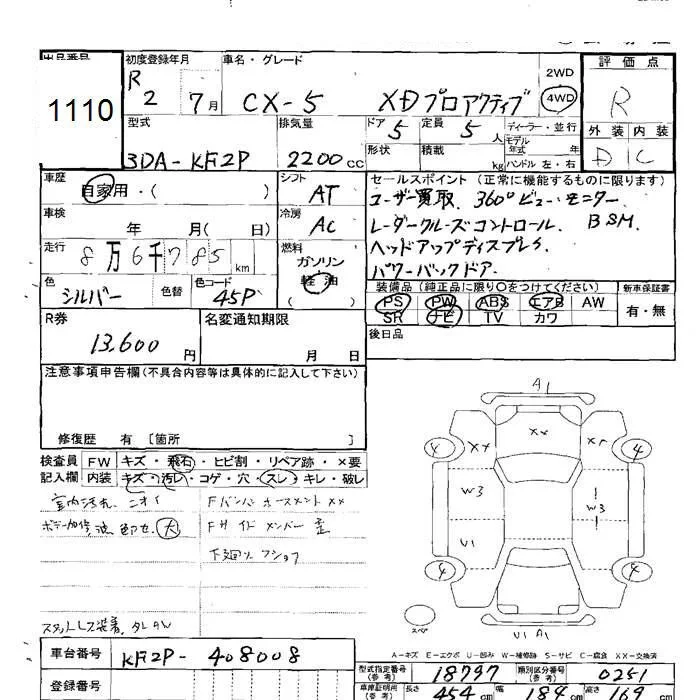 出品番号
1110
初度登録年月
R2 7月
車名・グレード
CX-5 XDプロアクティブ
2WD
4WD
評価点
R
外装 内装
D C
型式
3DA-KF2P
排気量
2200cc
ドア
5
定員
5人
ディーラー・並行
モデル年式 年
形状
積載
kg
ハンドル 左・右
車歴
自家用・( )
シフト
AT
セールスポイント(正常に機能するものに限ります)
ユーザー買取、360°ビューモニター
レーダークルーズコントロール、BSM、
ヘッドアップディスプレイ、
パワーバックドア.
車検
年 月( 日)
冷房
AC
走行
8万6千785km
燃料
ガソリン
(軽油)
色
シルバー
色替
色コード
45P
装備品(純正品に限り○をつけてください)
新車保証書
PS PW ABS エアB AW
SR ナビ TV カワ
有・無
R券
13,600円
名変通知期限
月 日
後日品
注意事項申告欄(不具合内容等は具体的に記入して下さい)
修復歴 有〔箇所 〕
検査員 FW キズ・飛石・ヒビ割・リペア跡・×要
記入欄 内装 キズ・汚レ・コゲ・穴・スレ・キレ・破レ
室内汚れ、ニオイ
Fバンパーホースメント××
大
Fサイドメンバー歪
スタットレス装着、
A1
XX
XX
W3
W3
U1
4
4
4
4
スペア
U1 A1
A-キズ E-エクボ U-凹み W-補修跡 S-サビ C-腐食 XX-交換済
車台番号
KF2P-408008
型式指定番号(参考)
18797
類別区分番号(参考)
0251
登録番号
車庫証明用(参考)
長さ
454cm
幅
184cm
高さ
169cm